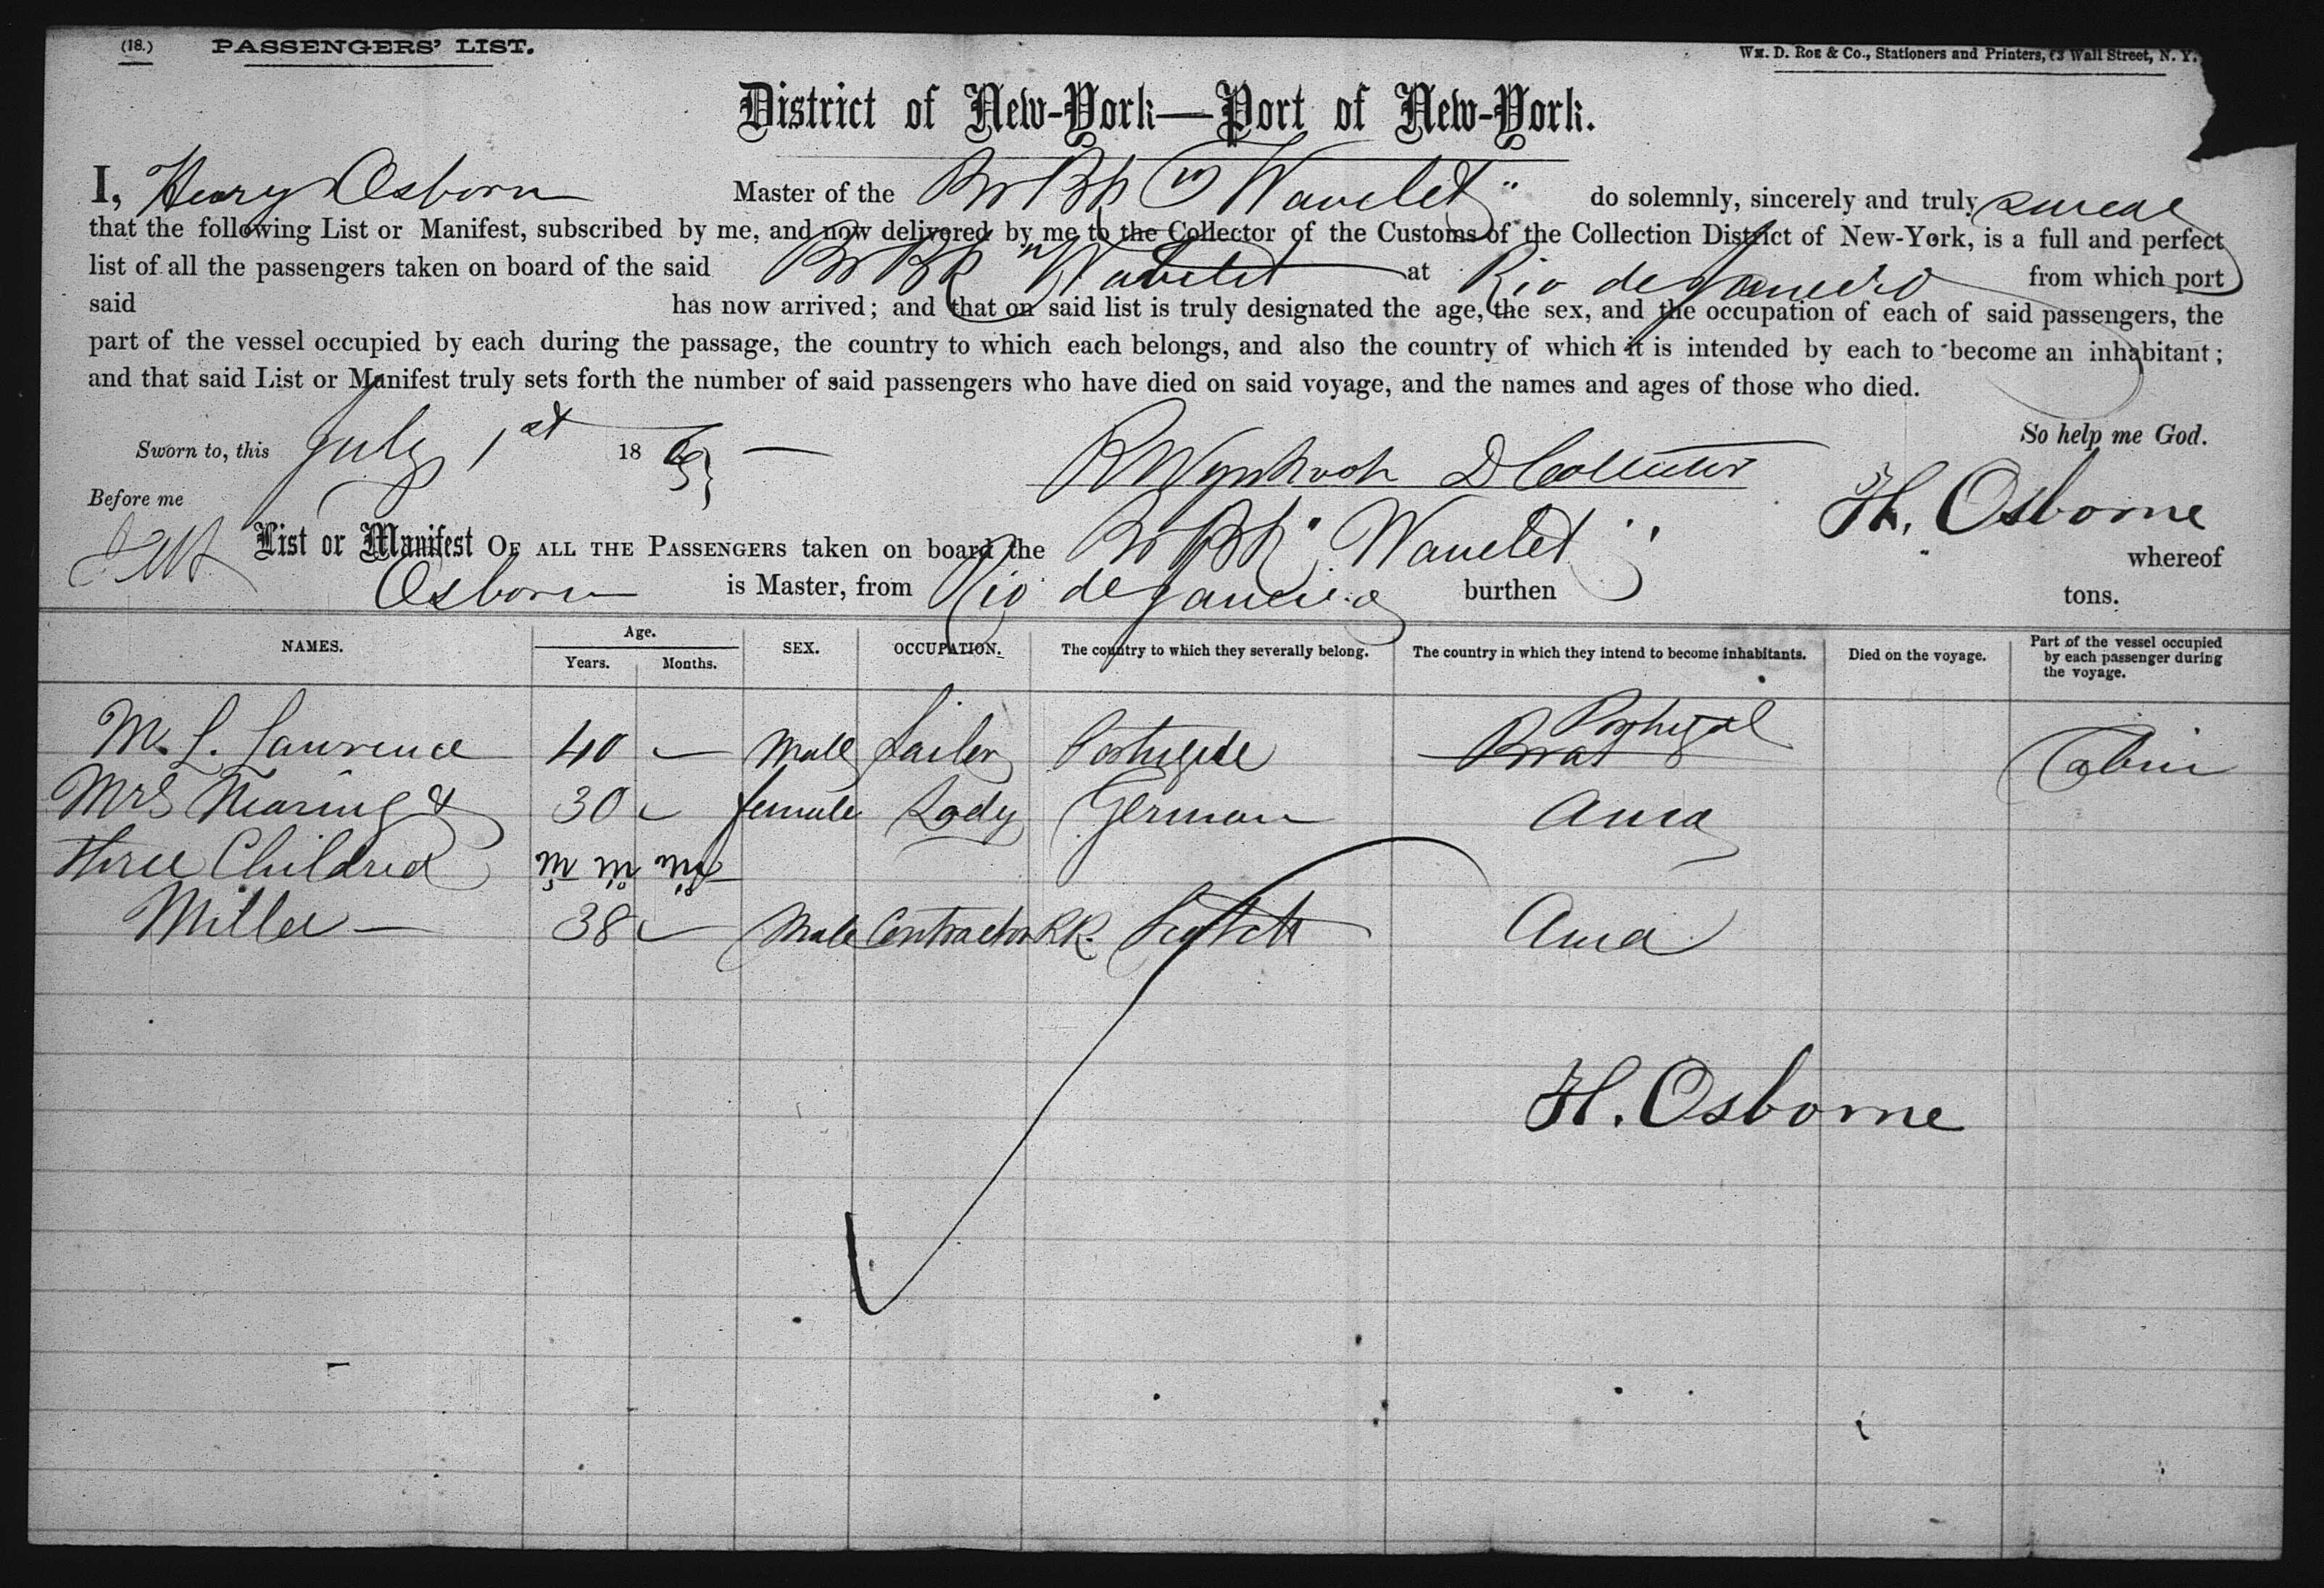 (18.) PASSENGERS' LIST.
Wm. D. Roe & Co., Stationers and Printers, Wall Street, N. Y.
District of New-York—Port of New-York.
I, Henry Osborn Master of the Br Bk "Wavelet" do solemnly, sincerely and truly swear
that the following List or Manifest, subscribed by me, and now delivered by me to the Collector of the Customs of the Collection District of New-York, is a full and perfect
list of all the passengers taken on board of the said Br Bk "Wavelet at Rio de Janeiro from which port
said has now arrived; and that on said list is truly designated the age, the sex, and the occupation of each of said passengers, the
part of the vessel occupied by each during the passage, the country to which each belongs, and also the country of which it is intended by each to become an inhabitant;
and that said List or Manifest truly sets forth the number of said passengers who have died on said voyage, and the names and ages of those who died.
So help me God.
Sworn to, this July 1st 18
D Collector
H. Osborne
Before me
List or Manifest OF ALL THE PASSENGERS taken on board the Br Bk "Wavelet" whereof
Osborn is Master, from Rio de Janeiro burthen tons.
NAMES. Age. Years. Months. SEX. OCCUPATION. The country to which they severally belong. The country in which they intend to become inhabitants. Died on the voyage. Part of the vessel occupied by each passenger during the voyage.
Portugal
M. L. Lawrence 40 — Male Sailor Cabin
Mrs Nearing & 30 female Lady German Ama
three Children m m m
Miller — 38 Male Contractor RR. Scotch Ama
H. Osborne